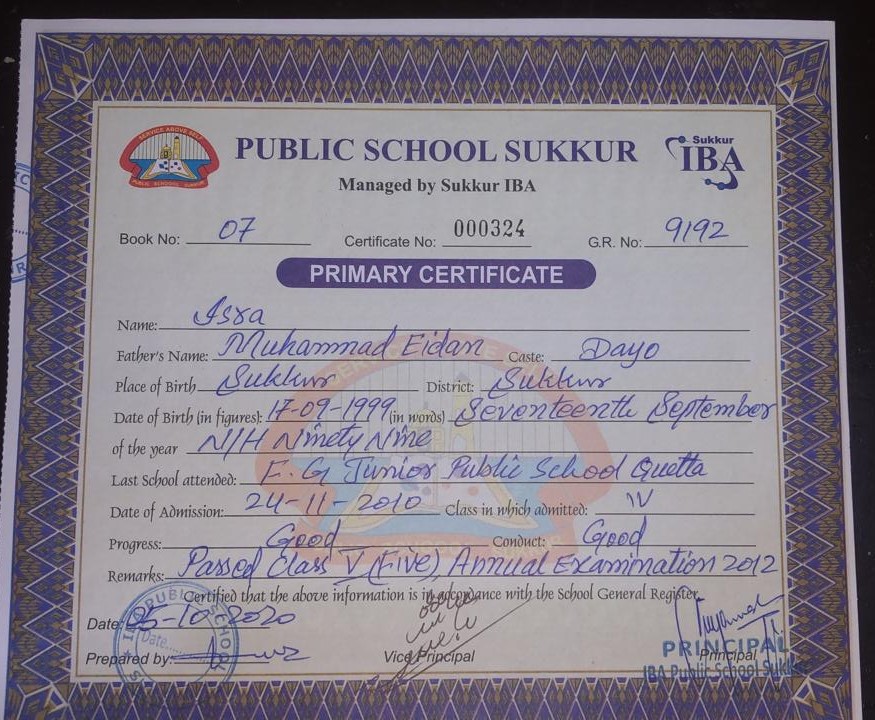 SERVICE ABOVE SELF
PUBLIC SCHOOL SUKKUR
PUBLIC SCHOOL SUKKUR
Managed by Sukkur IBA
Sukkur
IBA
Book No: 07 Certificate No: 000324 G.R. No: 9192
PRIMARY CERTIFICATE
Name: Isra
Father's Name: Muhammad Eidan Caste: Dayo
Place of Birth Sukkur District: Sukkur
Date of Birth (in figures): 17-09-1999 (in words) Seventeenth September
of the year N/H Ninety Nine
Last School attended: F. G Junior Public School Quetta
Date of Admission: 24-11-2010 Class in which admitted: IV
Progress: Good Conduct: Good
Remarks: Passed Class V (Five), Annual Examination 2012
Certified that the above information is in accordance with the School General Register.
Date: 05-10-2020
Prepared by: Vice Principal Principal
PRINCIPAL
IBA Public School Sukkur
IBA PUBLIC SCHOOL
Date....